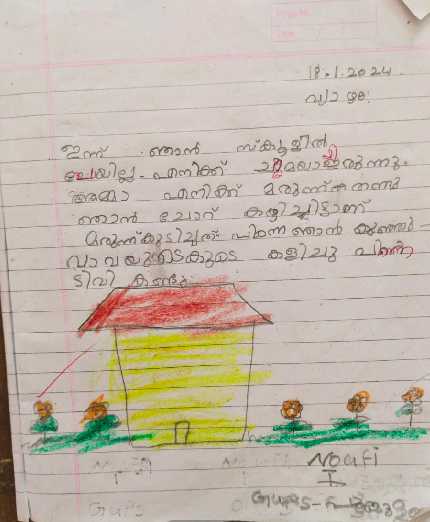 18.1.2024
വ്യാഴം
ഇന്ന് ഞാൻ സ്കൂളിൽ
പോയില്ല. എനിക്ക് ചുമയായിരുന്നു.
അമ്മ എനിക്ക് മരുന്ന് തന്നു
ഞാൻ ചോറ് കഴിച്ചിട്ടാണ്
മരുന്ന് കുടിച്ചത്. പിന്നെ ഞാൻ കുഞ്ഞു-
വാവയുടെകൂടെ കളിച്ചു പിന്നെ
ടിവി കണ്ടു
Noufi
I
GUPS-